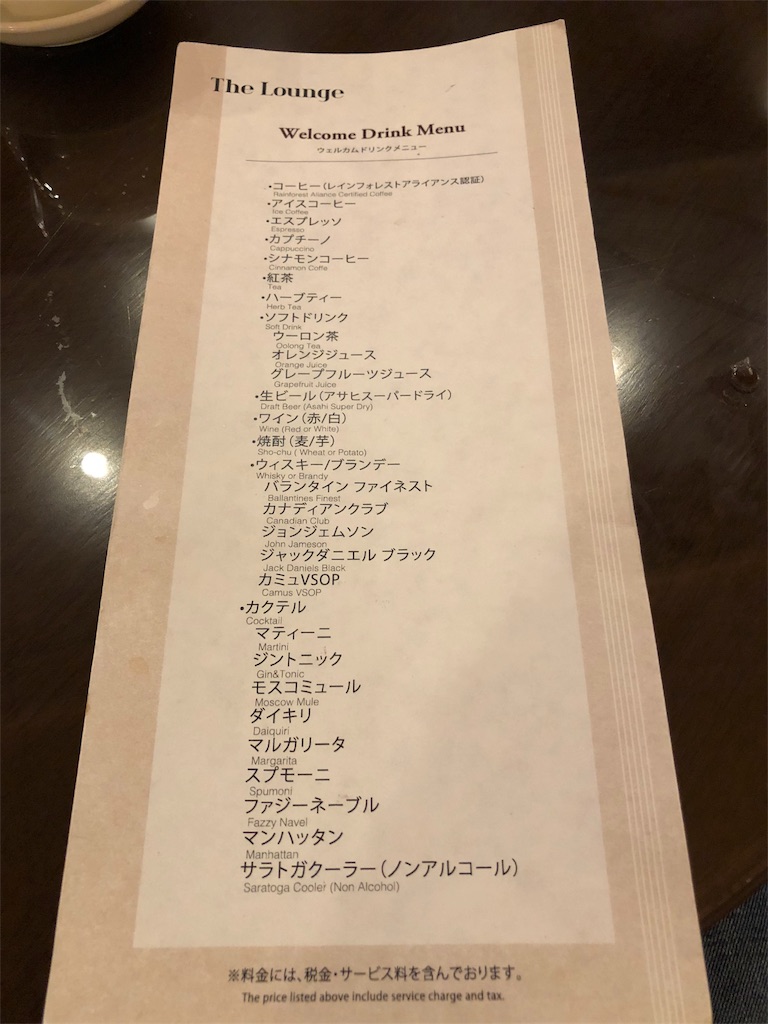 The Lounge
Welcome Drink Menu
ウェルカムドリンクメニュー
•コーヒー(レインフォレストアライアンス認証)
Rainforest Aliance Certified Coffee
•アイスコーヒー
Ice Coffee
•エスプレッソ
Espresso
•カプチーノ
Cappuccino
•シナモンコーヒー
Cinnamon Coffe
•紅茶
Tea
•ハーブティー
Herb Tea
•ソフトドリンク
Soft Drink
ウーロン茶
Oolong Tea
オレンジジュース
Orange Juice
グレープフルーツジュース
Grapefruit Juice
•生ビール(アサヒスーパードライ)
Draft Beer (Asahi Super Dry)
•ワイン(赤/白)
Wine (Red or White)
•焼酎(麦/芋)
Sho-chu ( Wheat or Potato)
•ウィスキー/ブランデー
Whisky or Brandy
バランタイン ファイネスト
Ballantines Finest
カナディアンクラブ
Canadian Club
ジョンジェムソン
John Jameson
ジャックダニエル ブラック
Jack Daniels Black
カミュVSOP
Camus VSOP
•カクテル
Cocktail
マティーニ
Martini
ジントニック
Gin&Tonic
モスコミュール
Moscow Mule
ダイキリ
Daiquiri
マルガリータ
Margarita
スプモーニ
Spumoni
ファジーネーブル
Fazzy Navel
マンハッタン
Manhattan
サラトガクーラー(ノンアルコール)
Saratoga Cooler (Non Alcohol)
※料金には、税金・サービス料を含んでおります。
The price listed above include service charge and tax.